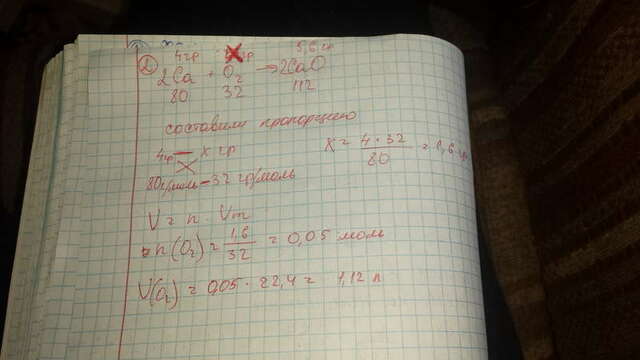 4 гр гр 5,6 гр
2) 2Ca + O2 → 2CaO
80 32 112
составили пропорцию
4 гр — x гр
80 г/моль – 32 гр/моль
x = 4 · 32 / 80 = 1,6 гр
V = n · Vm
n(O2) = 1,6 / 32 = 0,05 моль
V(O2) = 0,05 · 22,4 = 1,12 л